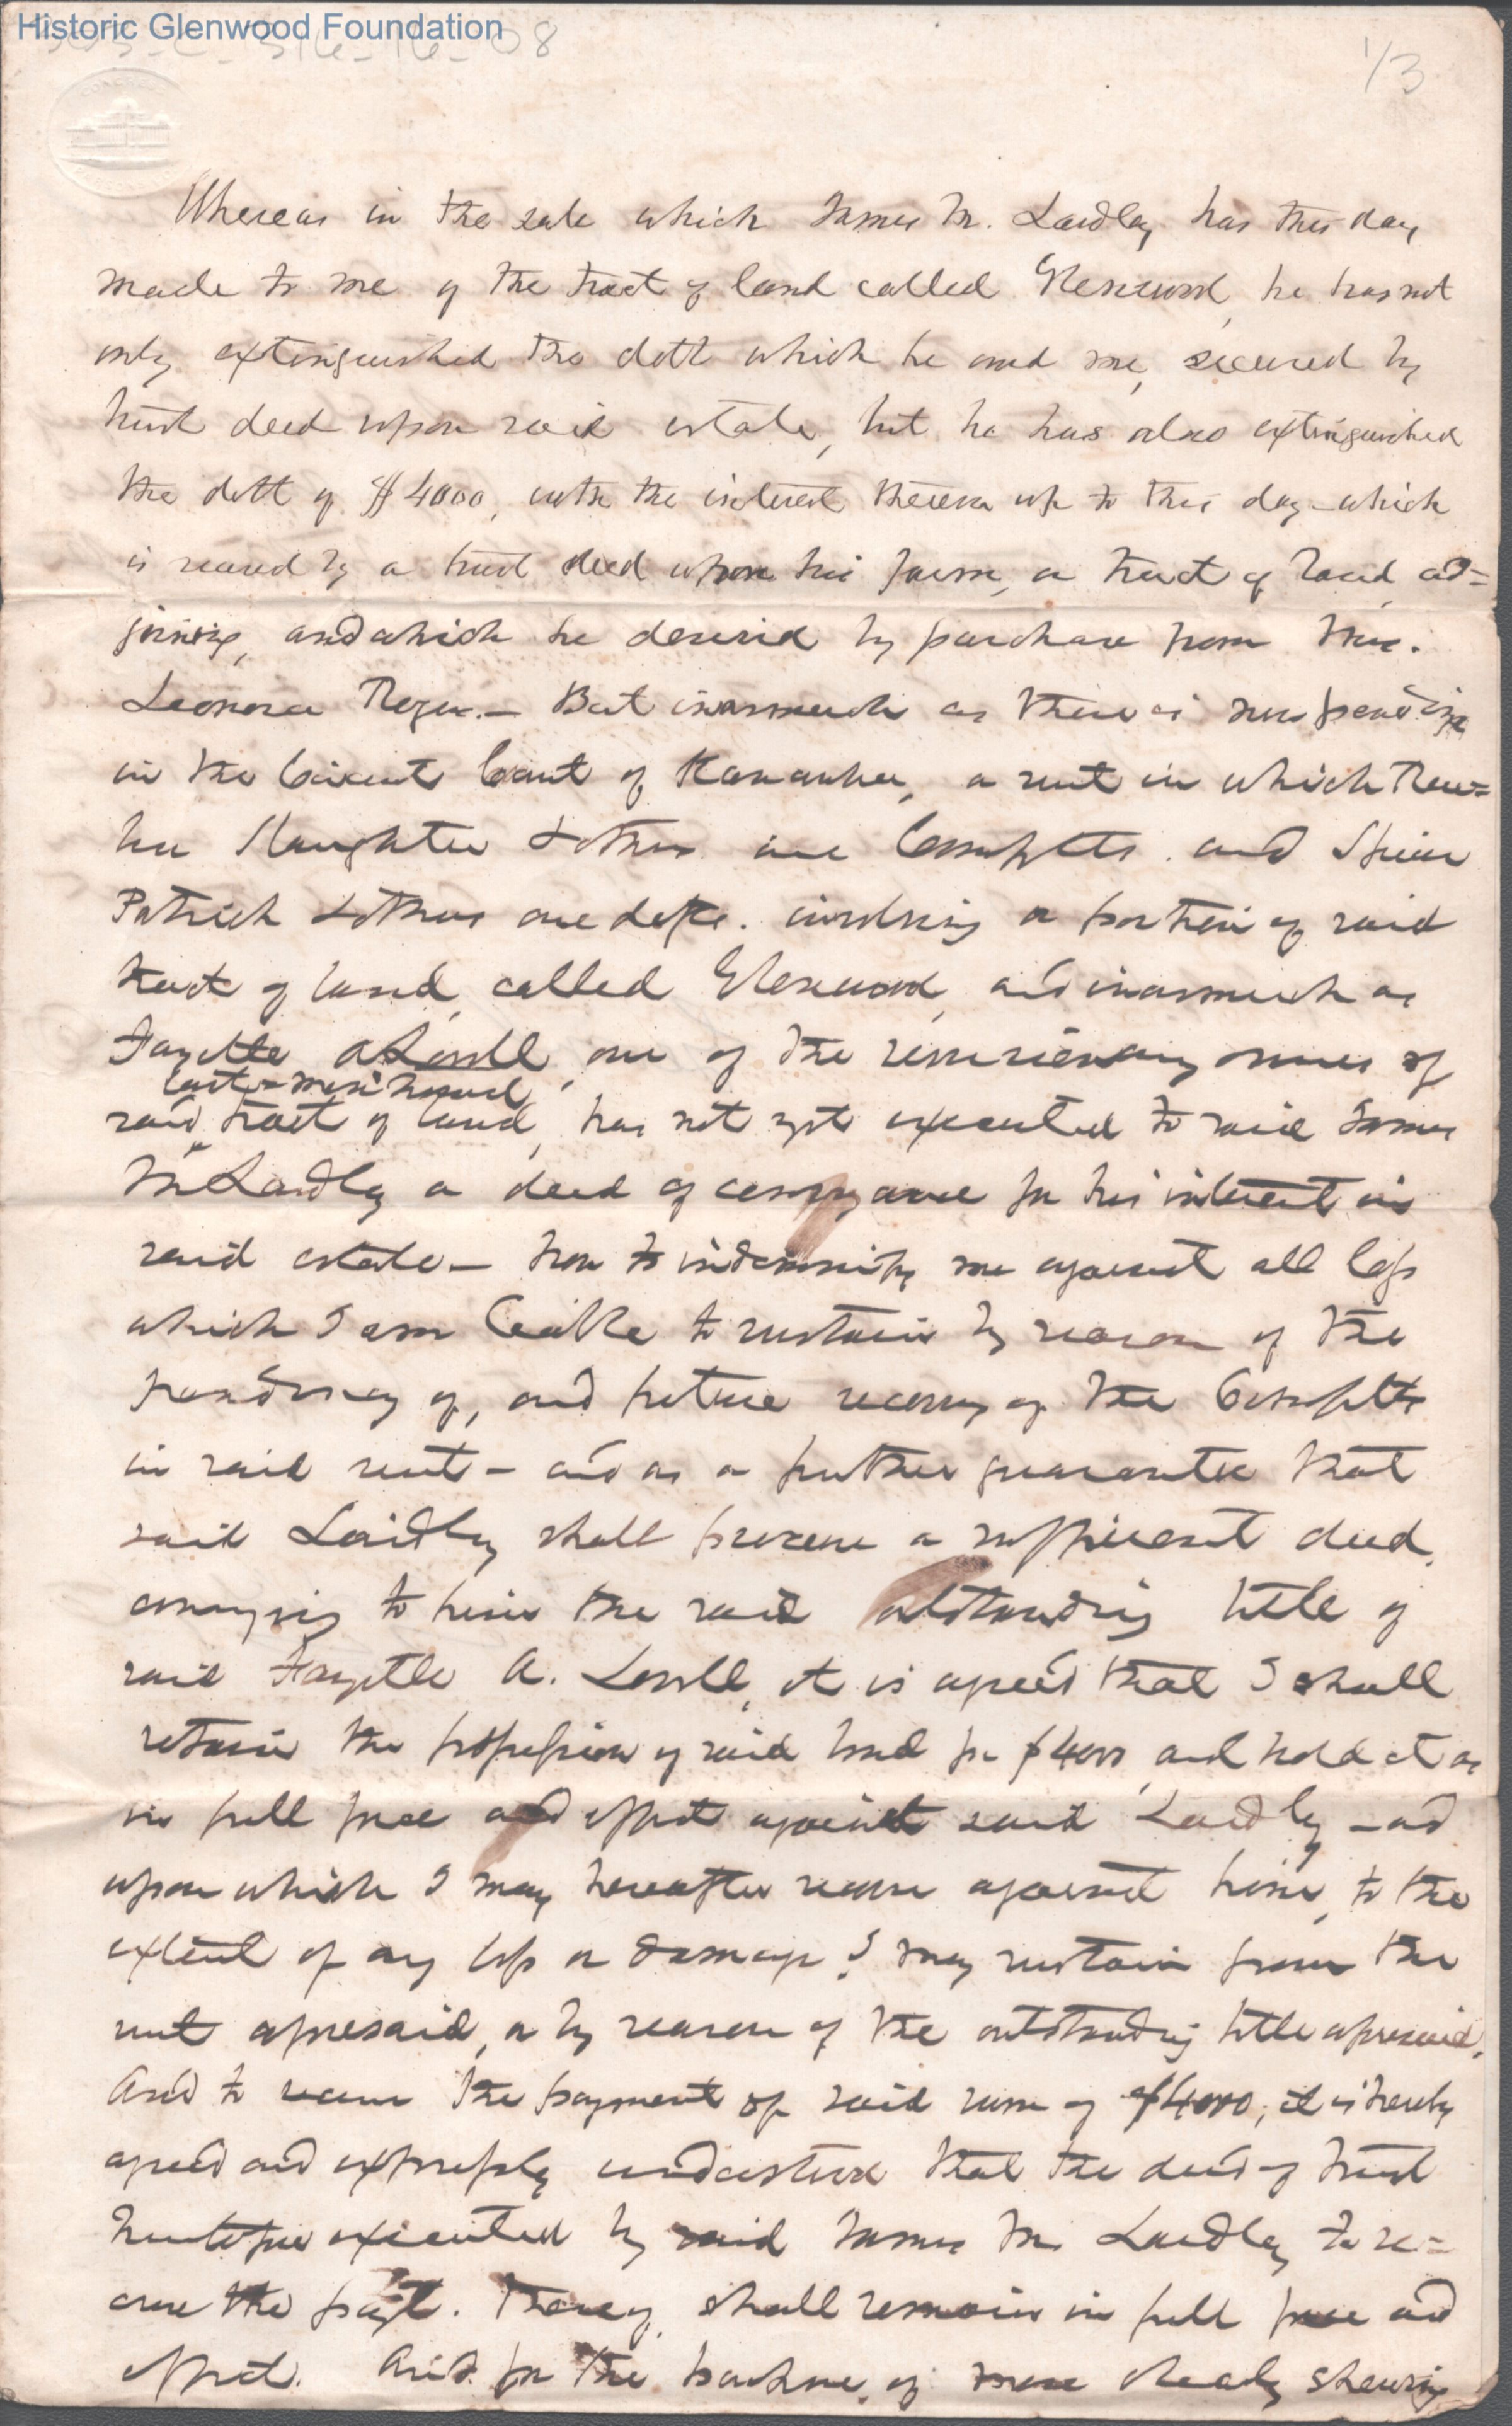 Historic Glenwood Foundation
1/3
Whereas in the sale which James M. Laidley has this day
made to me of the tract of land called Glenwood, he has not
only extinguished the debt which he owed me, secured by
trust deed upon said estate, but he has also extinguished
the debt of $4000, with the interest thereon up to this day - which
is secured by a trust deed upon his farm, or tract of land, ad=
joining, and which he derived by purchase from Mrs.
Leonora Roger. - But inasmuch as there is now pending
in the Circuit Court of Kanawha, a suit in which Reu=
ben Slaughter & others are Complts. and Spicer
Patrick & others are defts. involving a portion of said
tract of land, called Glenwood, and inasmuch as
Fayette A Lovell, one of the reversionary owners of
last mentioned
said tract of land, has not yet executed to said James
M Laidley a deed of conveyance for his interest in
said estate - now to indemnify me against all loss
which I am liable to sustain by reason of the
pendency of, and future recovery of the Complts
in said suit - and as a further guarantee that
said Laidley shall procure a sufficient deed,
conveying to him the said outstanding title of
said Fayette A. Lovell, it is agreed that I shall
retain the possession of said bond for $4000, and hold it as
in full force and effect against said Laidley - and
upon which I may hereafter recover against him, to the
extent of any loss or damage I may sustain from the
suit aforesaid, or by reason of the outstanding title aforesaid.
And to secure the payment of said sum of $4000, it is hereby
agreed and expressly understood that the deed of trust
heretofore executed by said James M. Laidley to se=
cure the paymt. thereof, shall remain in full force and
effect. And for the purpose of more clearly shewing